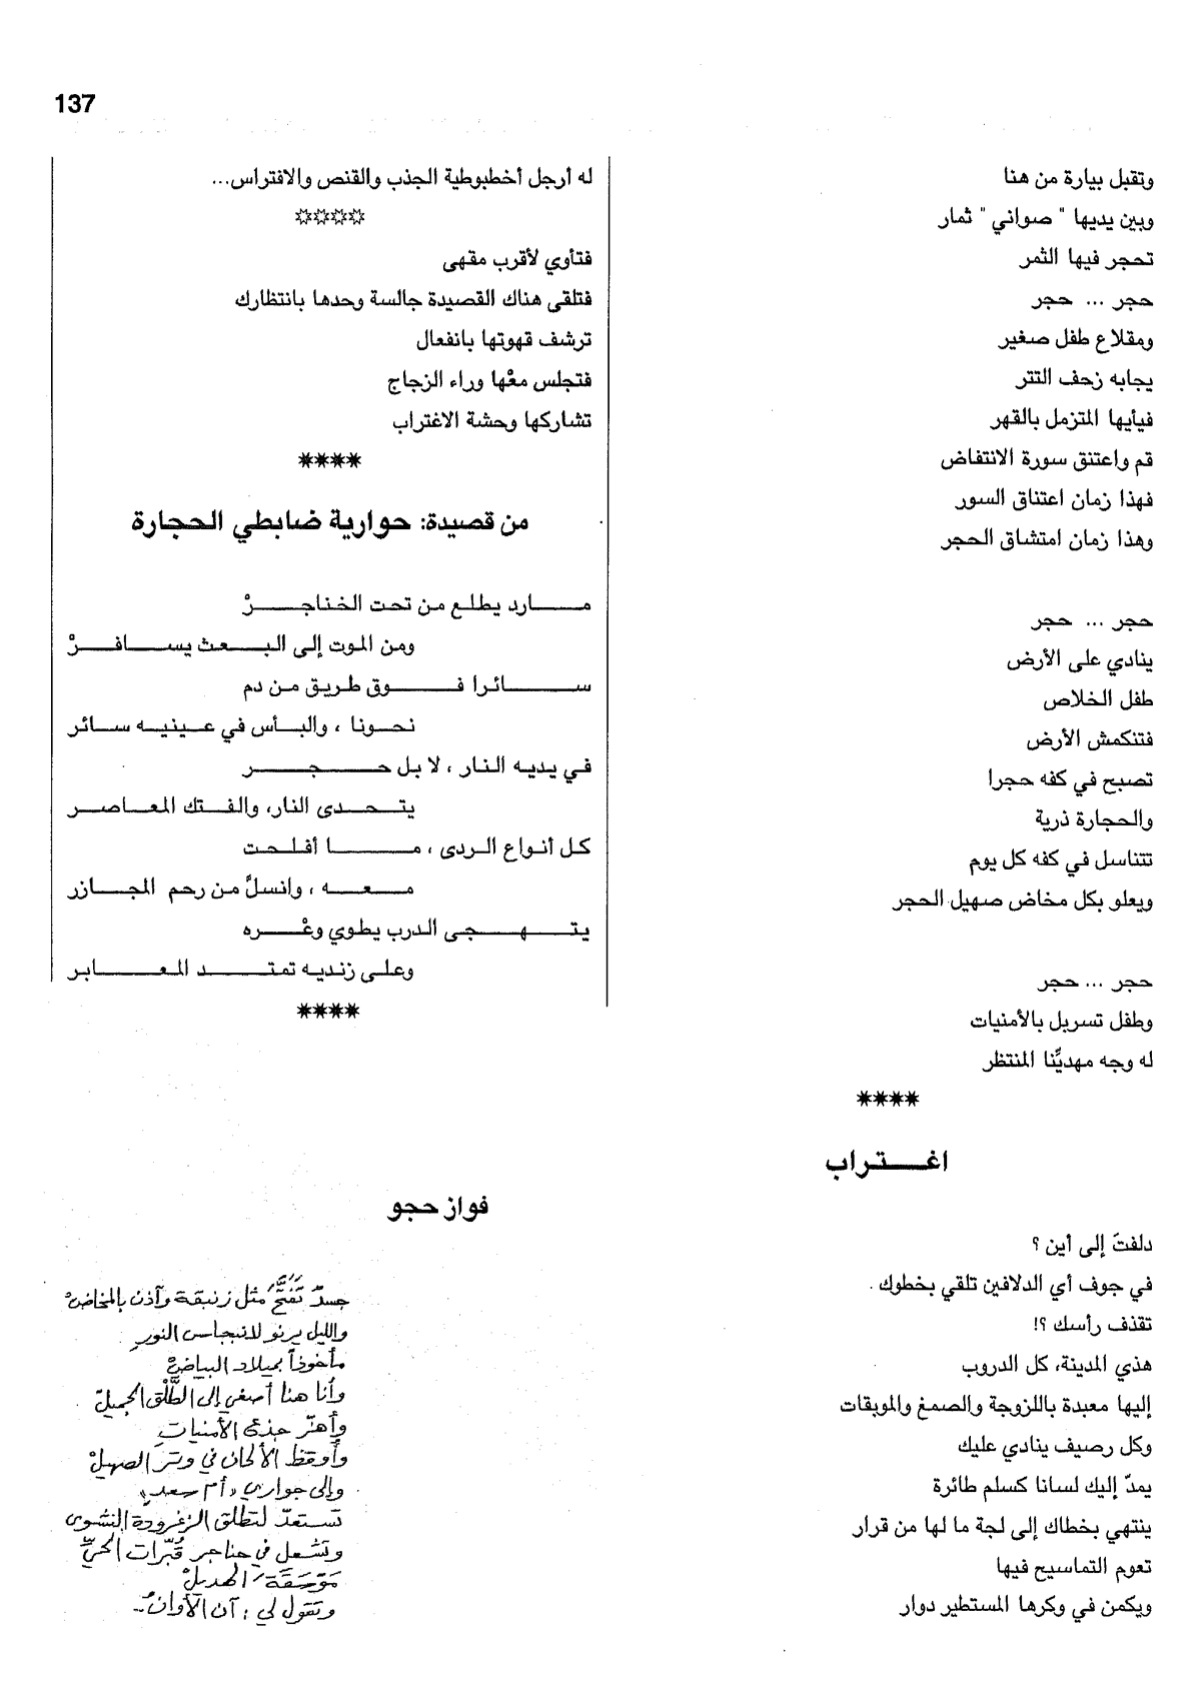 137
وتقبل بيارة من هنا
وبين يديها " صواني " ثمار
تحجر فيها الثمر
حجر ... حجر
ومقلاع طفل صغير
يجابه زحف التتر
فيأيها المتزمل بالقهر
قم واعتنق سورة الانتفاض
فهذا زمان اعتناق السور
وهذا زمان امتشاق الحجر
حجر ... حجر
ينادي على الأرض
طفل الخلاص
فتنكمش الأرض
تصبح في كفه حجرا
والحجارة ذرية
تتناسل في كفه كل يوم
ويعلو بكل مخاض صهيل الحجر
حجر ... حجر
وطفل تسربل بالأمنيات
له وجه مهديِّنا المنتظر
****
اغـــتـراب
دلفتَ إلى أين ؟
في جوف أي الدلافين تلقي بخطوك .
تقذف رأسك ؟!
هذي المدينة، كل الدروب
إليها معبدة باللزوجة والصمغ والموبقات
وكل رصيف ينادي عليك
يمدّ إليك لسانا كسلم طائرة
ينتهي بخطاك إلى لجة ما لها من قرار
تعوم التماسيح فيها
ويكمن في وكرها المستطير دوار
له أرجل أخطبوطية الجذب والقنص والافتراس...
****
فتأوي لأقرب مقهى
فتلقى هناك القصيدة جالسة وحدها بانتظارك
ترشف قهوتها بانفعال
فتجلس معْها وراء الزجاج
تشاركها وحشة الاغتراب
****
من قصيدة: حوارية ضابطي الحجارة
مـــارد يطلـع من تحت الخناجـــرْ
ومن الموت إلى البـــعث يســـافـــرْ
ســـائرا فـــوق طريق من دم
نحـونا ، والبـأس في عـينيـه سـائر
في يديه النار ، لا بل حـــجـــر
يتـحـدى النار، والفـتك المعـاصـر
كل أنواع الـردى ، مـــا أفلـحت
مـــعـــه ، وانسلَّ من رحم المجـازر
يتـــهـــجى الدرب يطوي وعْـــره
وعلـى زنديـه تمتـــد المعـــابـر
****
فواز حجو
جسدٌ تَفَتَّحَ مثل زنبقة وآذن بالمخاضْ
والليل يرنو لانبجاس النورِ
مأخوذاً بميلاد البياضْ
وأنا هنا أصغي إلى الطَّلْق الجميلْ
وأهزّ جذع الأمنياتِ
وأوقظ الألحان في وترَ الصهيلْ
وإلى جواري «أم سعد»
تستعدّ لتطلق الزغرودة النشوى
وتشعل في حناجر قُبّرات الحيِّ
مَوْسَقَةَ الهديلْ
وتقول لي : آن الأوانْ..